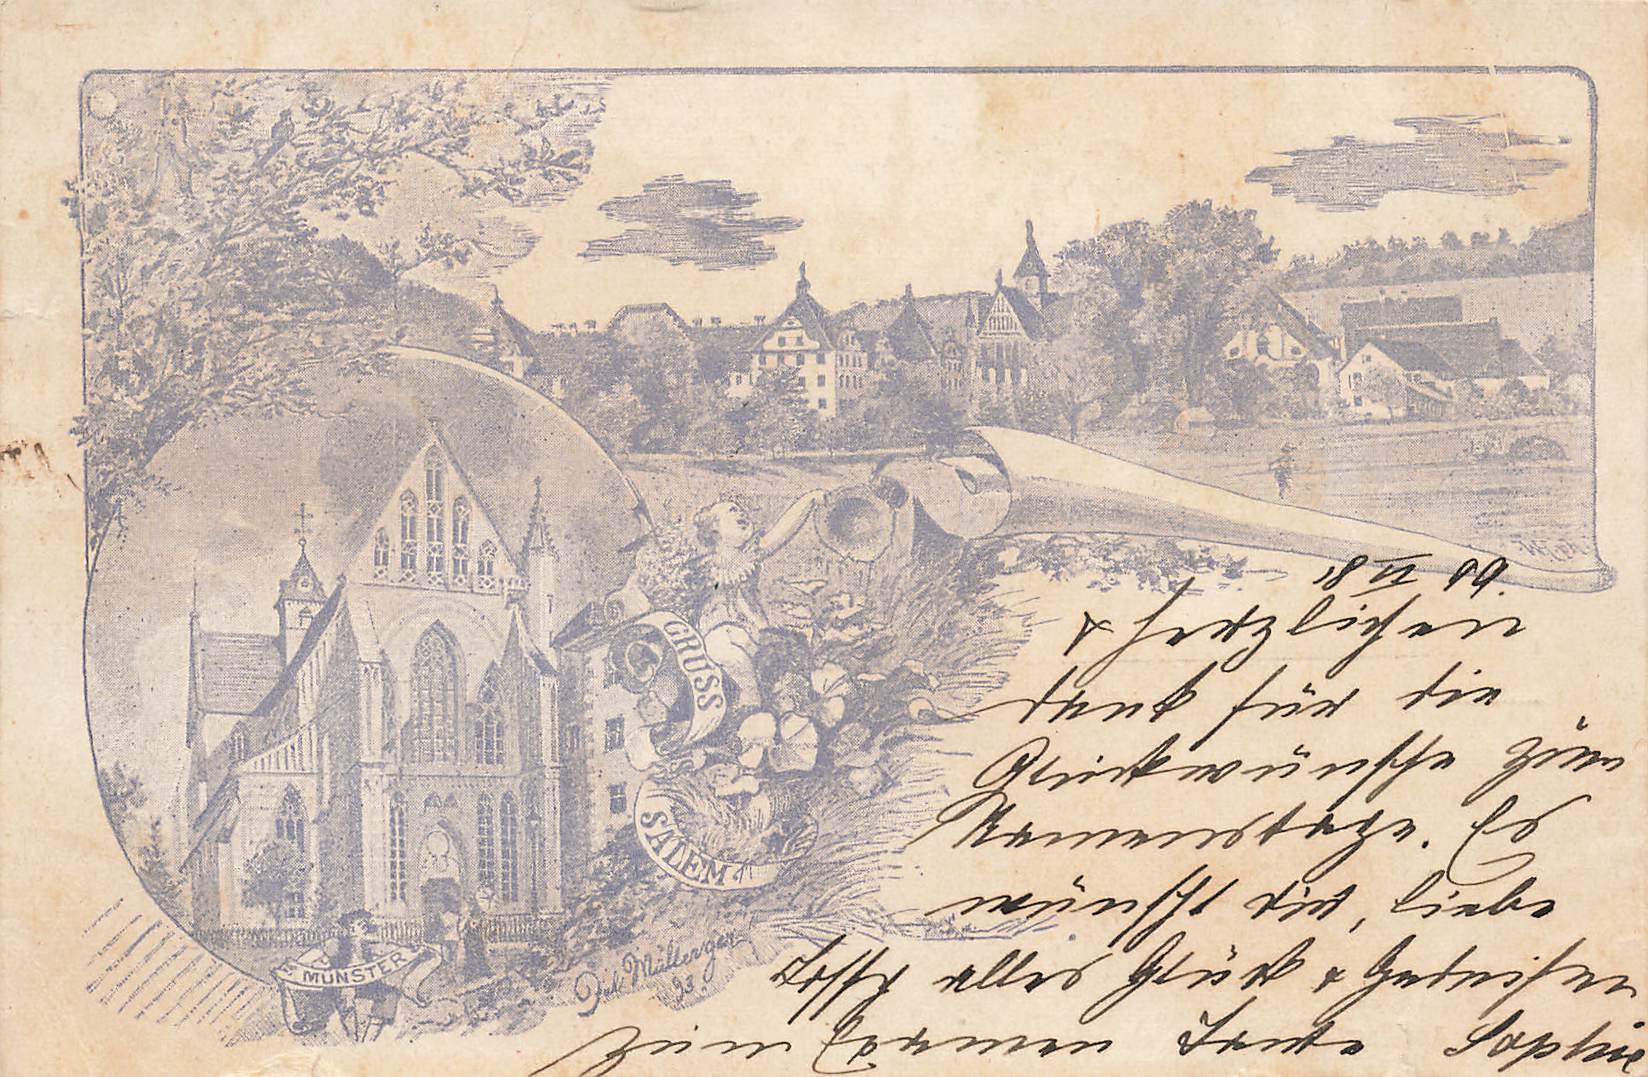 GRUSS
AUS
SALEM
MÜNSTER
Müllerger
93.
18 VI 99.
& herzlichen
Dank für die
Glückwünsche zum
Namenstage. Es
wünscht dir, liebe
alles Glück & Gedeihen
zum Examen Tante Sophie